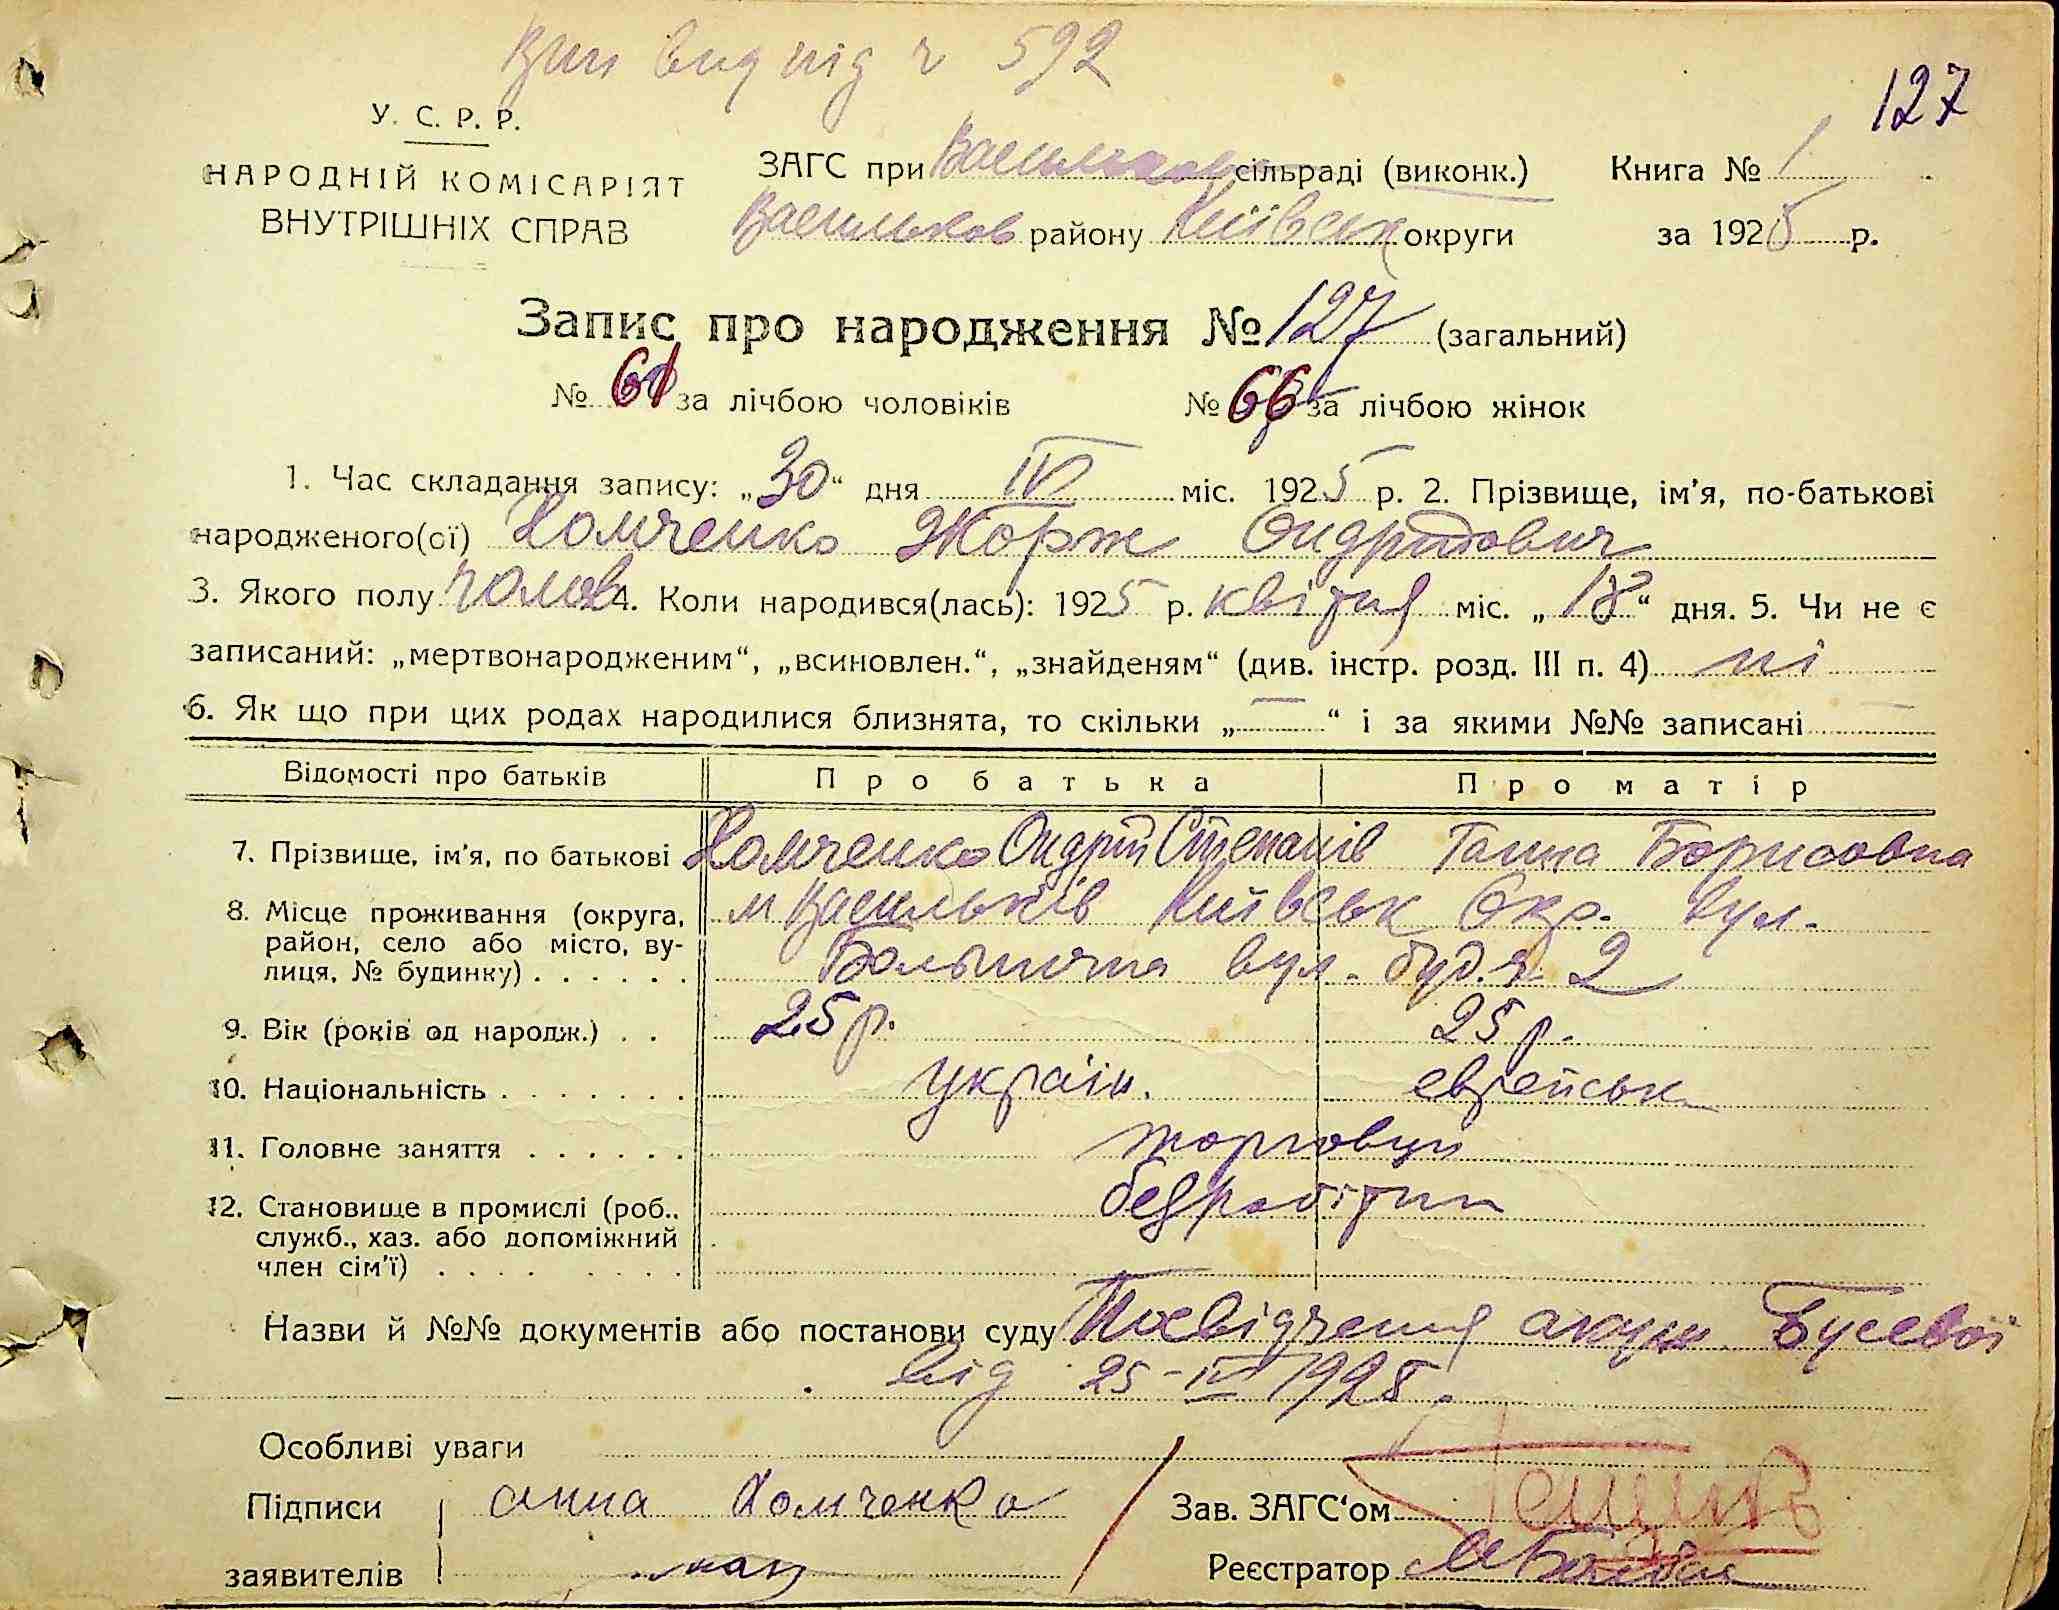 Вип вид під ч 592
127
У. С. Р. Р.
НАРОДНІЙ КОМІСАРІЯТ
ВНУТРІШНІХ СПРАВ
ЗАГС при Васильков сільраді (виконк.)
Васильков району Київськ округи
Книга № 1
за 1925 р.
Запис про народження № 127 (загальний)
№ 61 за лічбою чоловіків № 66 за лічбою жінок
1. Час складання запису: „30“ дня IV міс. 1925 р. 2. Прізвище, ім'я, по-батькові
народженого(ої) Хомченко Жорж Ондрійович
3. Якого полу чолов 4. Коли народився(лась): 1925 р. квітня міс. „18“ дня. 5. Чи не є
записаний: „мертвонародженим“, „всиновлен.“, „знайденям“ (див. інстр. розд. III п. 4) ні
6. Як що при цих родах народилися близнята, то скільки „—“ і за якими №№ записані —
Відомості про батьків Про батька Про матір
7. Прізвище, ім'я, по батькові Хомченко Ондрій Степанів Ганна Борисовна
8. Місце проживання (округа, район, село або місто, вулиця, № будинку) м Васильків Київськ Окр. вул.
вул. буд. № 2
9. Вік (років од народж.) 25 р. 25 р.
10. Національність україн. еврейськ
11. Головне заняття торговци
12. Становище в промислі (роб.. служб., хаз. або допоміжний член сім'ї) безробітни
Назви й №№ документів або постанови суду Посвідчення акуш. Бусевої
від 25-IV 1925.
Особливі уваги
Підписи анна Хомченко Зав. ЗАГС'ом
заявителів Реєстратор